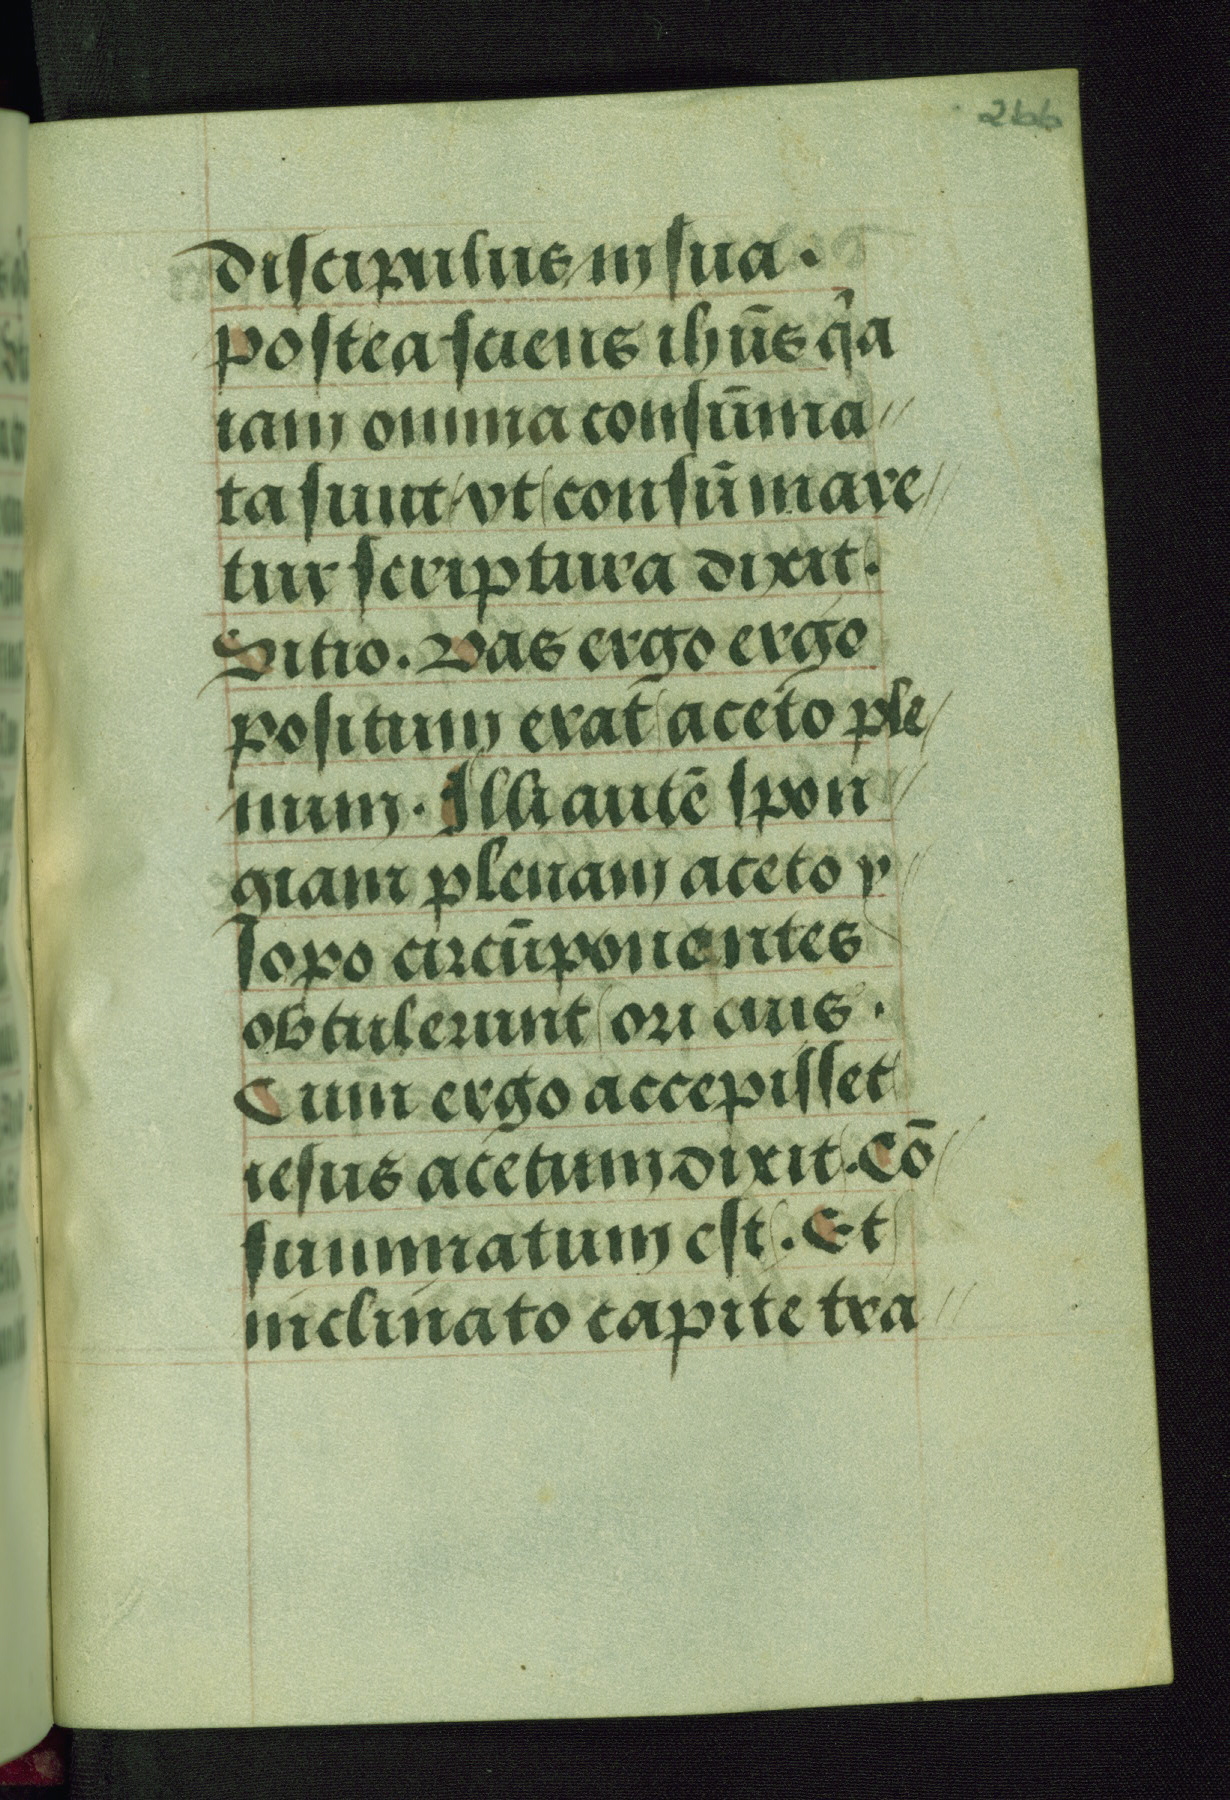 266
discipulus in sua.
postea sciens ihūs q̃a
iam omnia consūma//
ta sunt/ vt consūmare//
tur scriptura dixit.
Sitio. Vas ergo ergo
positum erat aceto ple/
num. Illi autē spon//
giam plenam aceto y//
sopo circūponentes
obtulerunt ori eius.
Cum̄ ergo accepisset
iesus acetum dixit. Cō//
summatum est. Et
inclinato capite tra//